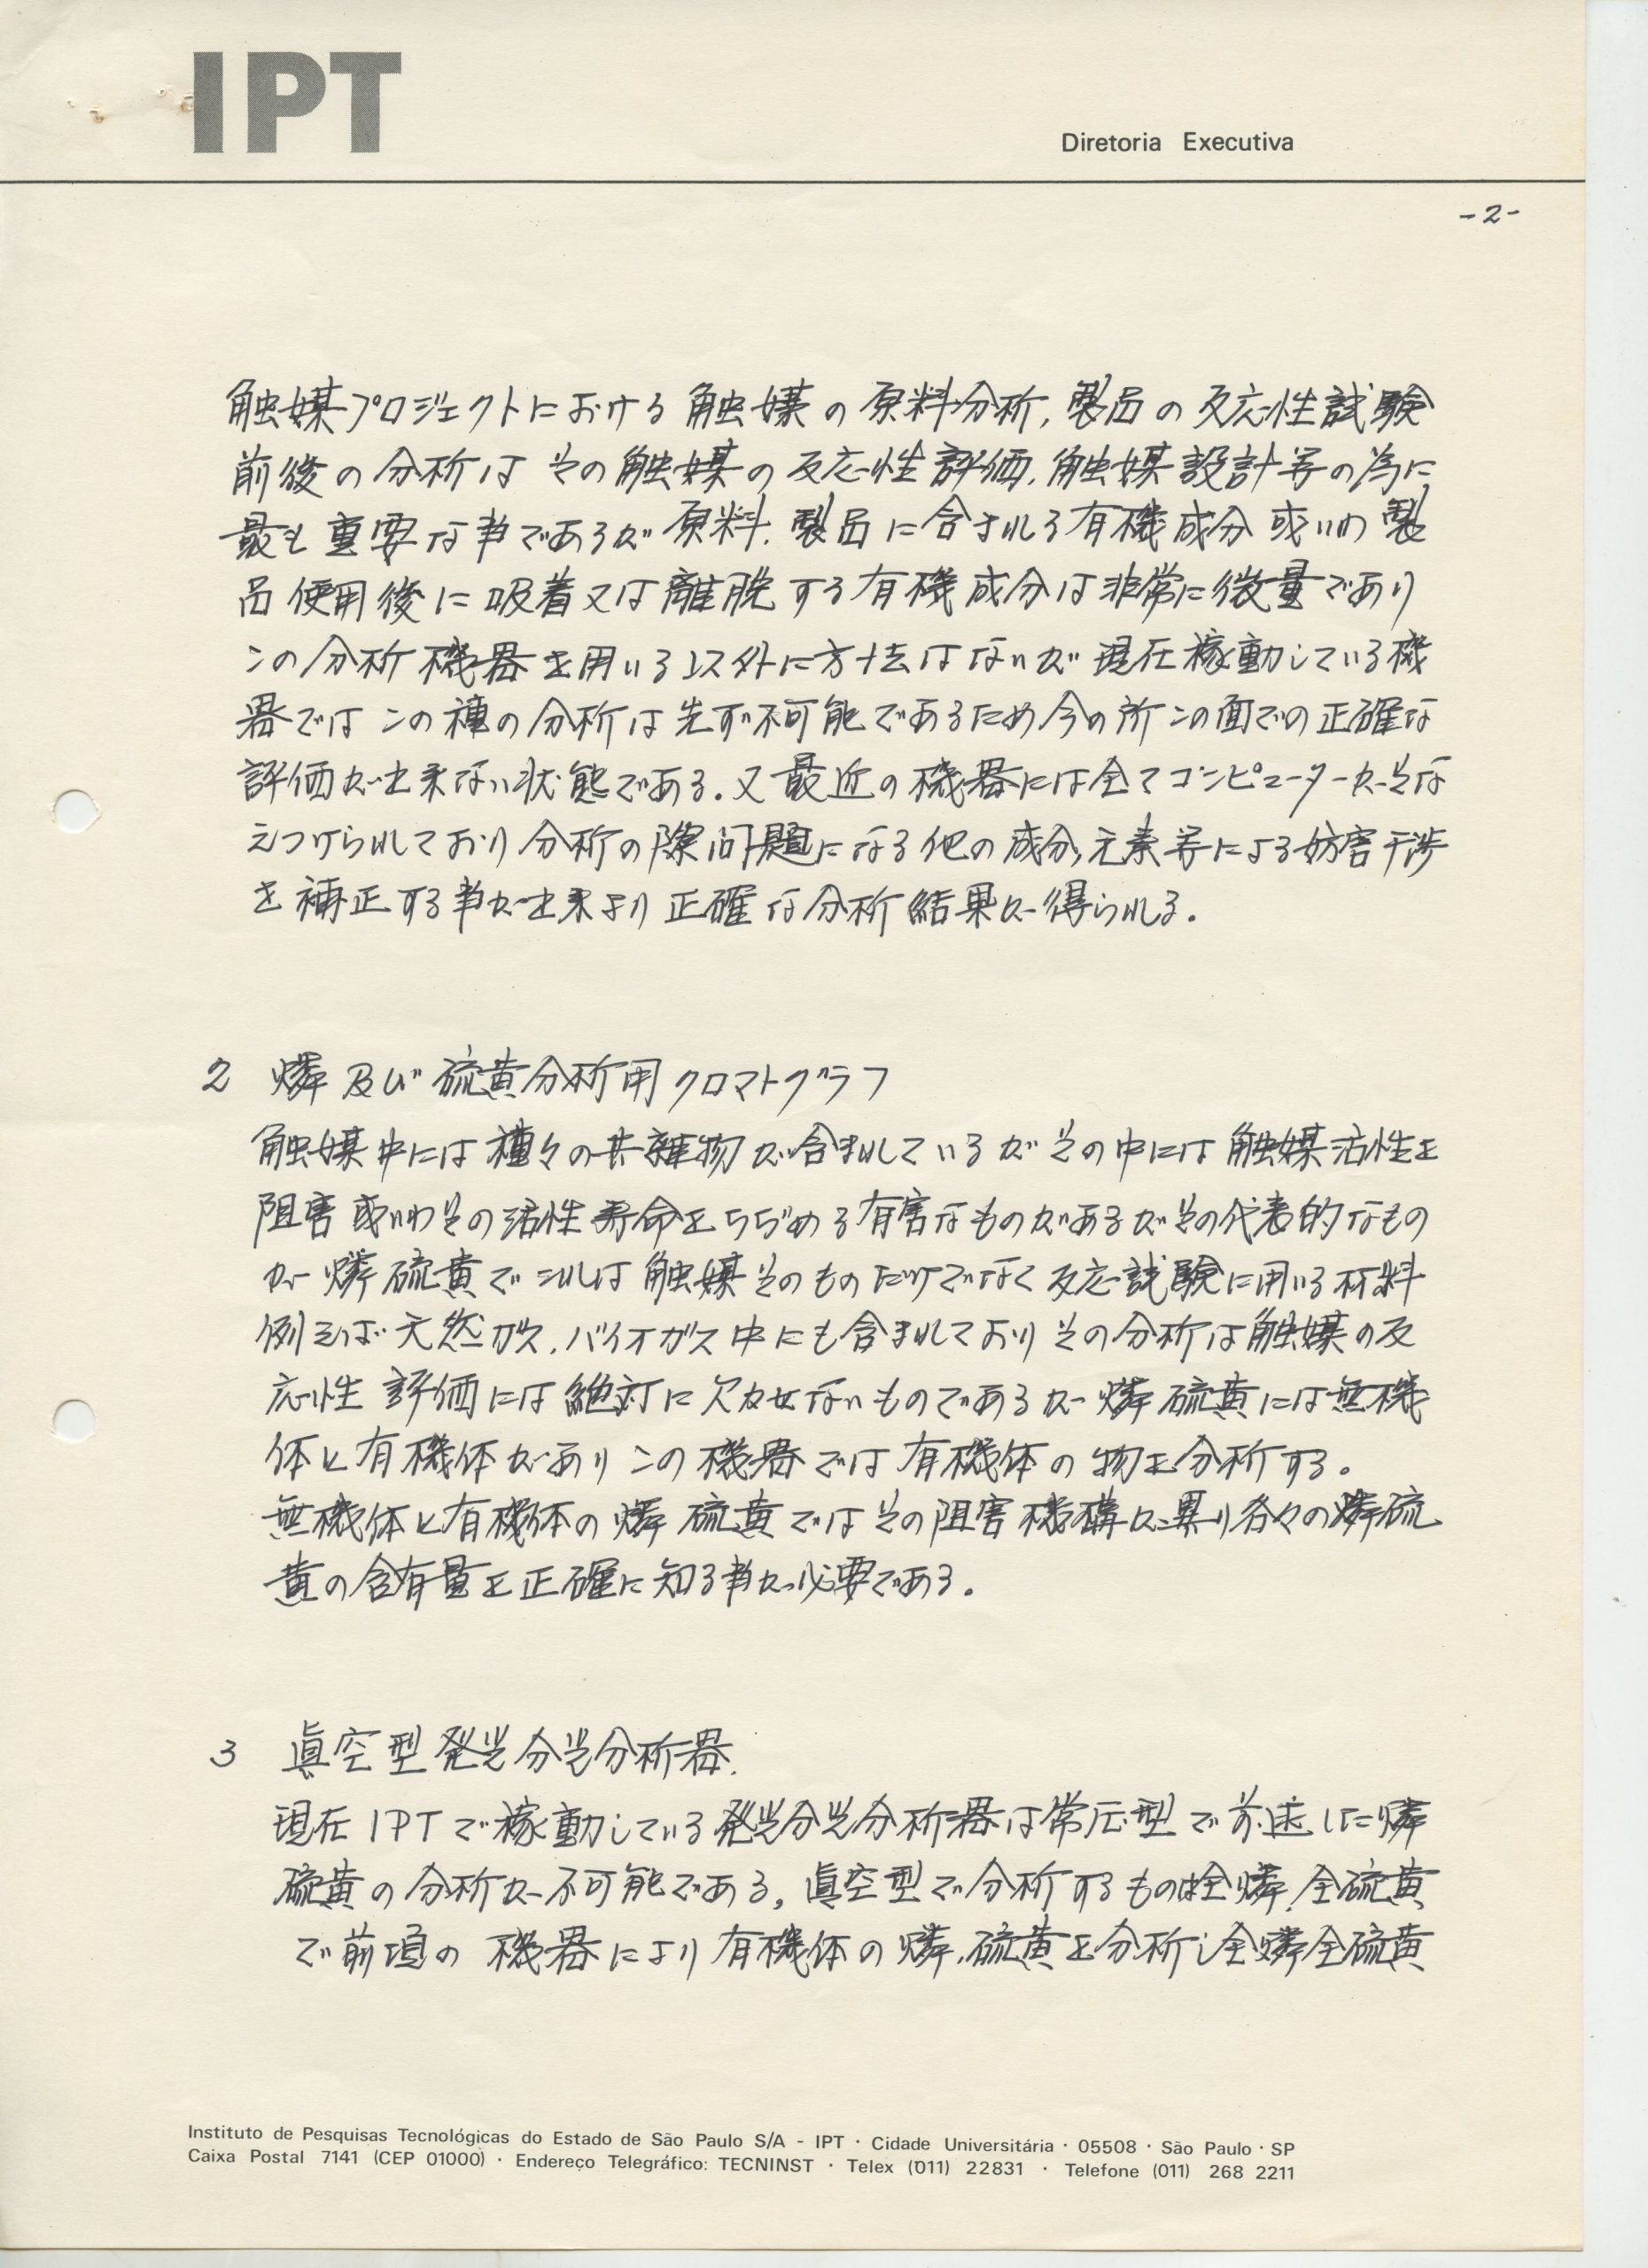 IPT
Diretoria Executiva
-2-
触媒プロジェクトにおける触媒の原料分析,製品の反応性試験
前後の分析はその触媒の反応性評価,触媒設計等の為に
最も重要な事であるが原料,製品に含まれる有機成分或いわ製
品使用後に吸着又は離脱する有機成分は非常に微量であり
この分析機器を用いる以外に方法はないが現在稼動している機
器ではこの種の分析は先ず不可能であるため今の所この面での正確な
評価が出来ない状態である.又最近の機器には全てコンピューターがそな
えつけられしており分析の際問題になる他の成分,元素等による妨害干渉
を補正する事が出来より正確な分析結果が得られる.
2 燐及び硫黄分析用クロマトグラフ
触媒中には種々の共雑物が含まれているがその中には触媒活性を
阻害或いわその活性寿命をちぢめる有害なものがあるがその代表的なもの
が燐硫黄でこれは触媒そのものだけでなく反応試験に用いる材料
例えば天然ガス,バイオガス中にも含まれておりその分析は触媒の反
応性評価には絶対に欠かせないものであるが燐硫黄には無機
体と有機体がありこの機器では有機体の物を分析する.
無機体と有機体の燐硫黄ではその阻害機構が異り各々の燐硫
黄の含有量を正確に知る事が必要である.
3 眞空型発光分光分析器.
現在IPTで稼動している発光分光分析器は常圧型で前述した燐
硫黄の分析が不可能である,眞空型で分析するものは全燐,全硫黄
で前項の機器により有機体の燐,硫黄を分析し全燐全硫黄
Instituto de Pesquisas Tecnológicas do Estado de São Paulo S/A - IPT · Cidade Universitária · 05508 · São Paulo · SP
Caixa Postal 7141 (CEP 01000) · Endereço Telegráfico: TECNINST · Telex (011) 22831 · Telefone (011) 268 2211